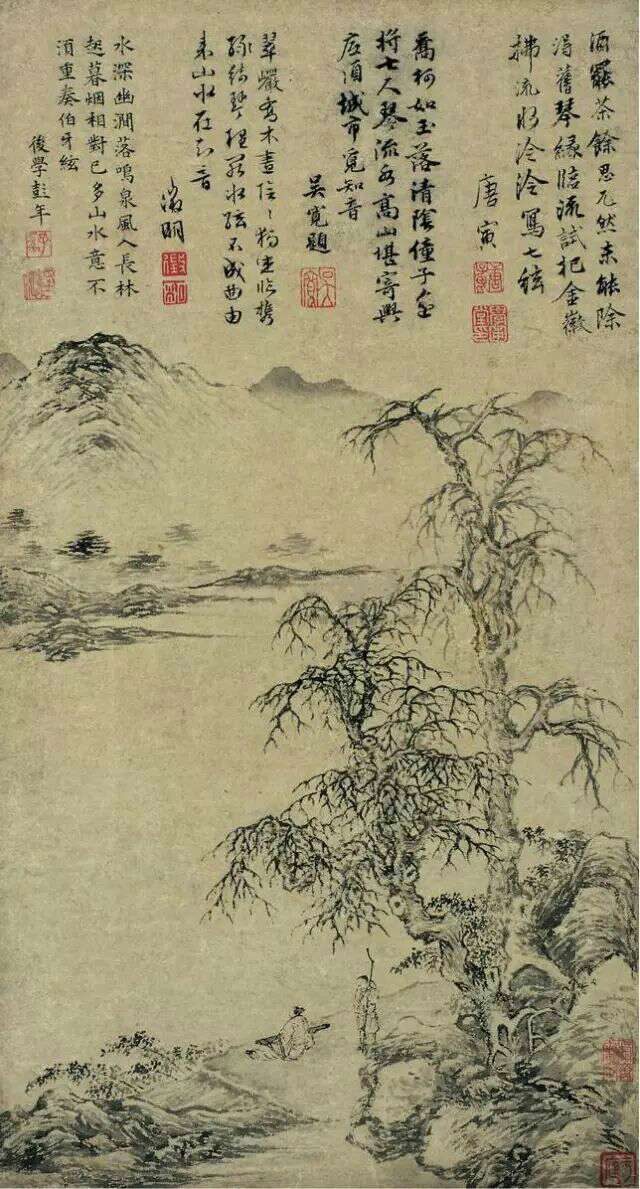 酒罷茶餘思兀然未能除
得舊琴緣臨流試把金徽
拂流水泠泠寫七絃
唐寅
喬柯如玉落清陰僮子金
將七人琴流水高山堪寄興
底須城市覓知音
吳寬題
翠巖喬木晝陰陰獨坐臨
絲結琴 水絃不成曲由
來山水在知音
徵明
水深幽澗落鳴泉風入長林
起暮烟相對已多山水意不
須重奏伯牙絃
後學彭年